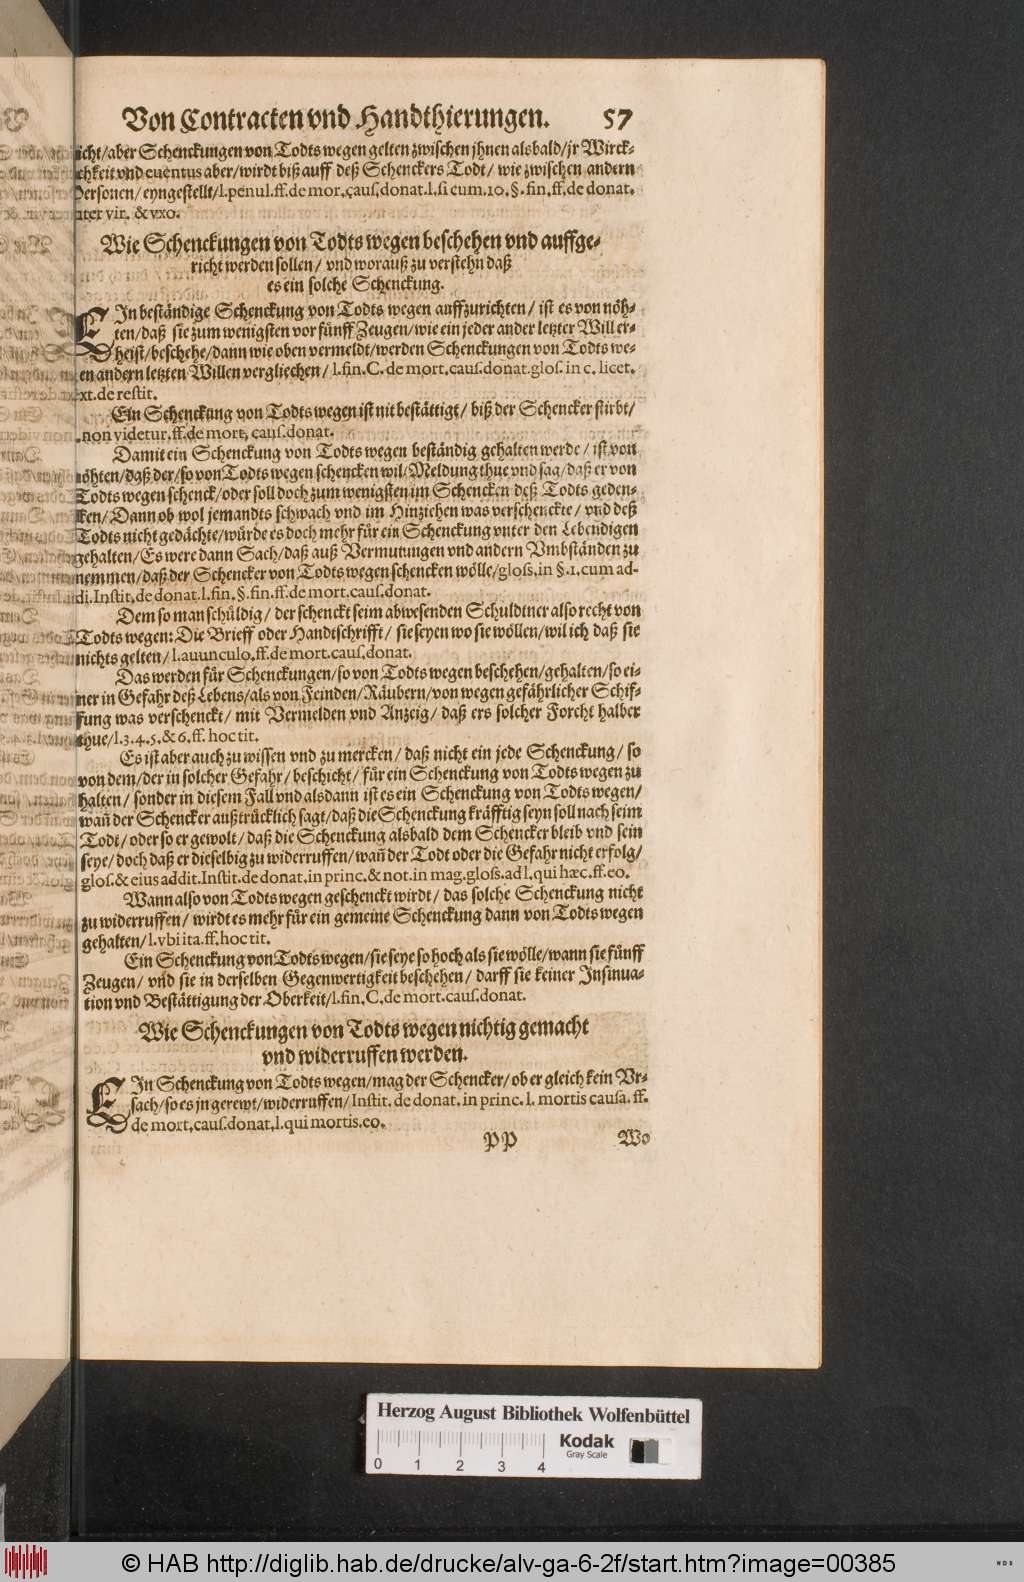 Von Contracten vnd Handthierungen. 57
icht/aber Schenckungen von Todts wegen gelten zwischen jhnen alsbald/jr Wirck-
chkeit vnd euentus aber/wirdt biß auff deß Schenckers Todt/ wie zwischen andern
Personen/ eyngestellt/l.penul.ff.de mor.caus.donat.l.si cum.10.§.fin.ff.de donat.
nter vir. & vxo.
Wie Schenckungen von Todts wegen beschehen vnd auffge-
richt werden sollen/ vnd worauß zu verstehn daß
es ein solche Schenckung.
EIn beständige Schenckung von Todts wegen auffzurichten/ ist es von nöh-
ten/daß sie zum wenigsten vor fünff Zeugen/wie ein jeder ander letzter Will er-
heist/beschehe/dann wie oben vermeldt/werden Schenckungen von Todts we-
en andern letzten Willen vergliechen/ l.fin.C.de mort.caus.donat.glos.in c. licet.
ext.de restit.
Ein Schenckung von Todts wegen ist nit bestättigt/ biß der Schencker stirbt/
.non videtur.ff.de mort. caus.donat.
Damit ein Schenckung von Todts wegen beständig gehalten werde/ ist von
nöhten/daß der/so von Todts wegen schencken wil/Meldung thue vnd sag/daß er von
Todts wegen schenck/oder soll doch zum wenigsten im Schencken deß Todts geden-
cken/Dann ob wol jemandts schwach vnd im Hinziehen was verschenckte/ vnd deß
Todts nicht gedächte/würde es doch mehr für ein Schenckung vnter den Lebendigen
gehalten/Es were dann Sach/daß auß Vermutungen vnd andern Vmbständen zu
nemmen/daß der Schencker von Todts wegen schencken wölle/gloss.in §.1.cum ad-
di.Instit.de donat.l.fin.§.fin.ff.de mort.caus.donat.
Dem so man schüldig/ der schenckt seim abwesenden Schuldtner also recht von
Todts wegen: Die Brieff oder Handtschrifft/ sie seyen wo sie wöllen/wil ich daß sie
nichts gelten/l.auunculo.ff.de mort.caus.donat.
Das werden für Schenckungen/so von Todts wegen beschehen/gehalten/so ei-
ner in Gefahr deß Lebens/als von Feinden/Räubern/von wegen gefährlicher Schif-
fung was verschenckt/ mit Vermelden vnd Anzeig/ daß ers solcher Forcht halber
thue/l.3.4.5.& 6.ff. hoc tit.
Es ist aber auch zu wissen vnd zu mercken/ daß nicht ein jede Schenckung/ so
von dem/der in solcher Gefahr/beschicht/für ein Schenckung von Todts wegen zu
halten/ sonder in diesem Fall vnd alsdann ist es ein Schenckung von Todts wegen/
wañ der Schencker außtrücklich sagt/daß die Schenckung kräfftig seyn soll nach seim
Todt/oder so er gewolt/daß die Schenckung alsbald dem Schencker bleib vnd sein
seye/doch daß er dieselbig zu widerruffen/wañ der Todt oder die Gefahr nicht erfolg/
glos.& eius addit.Instit.de donat.in princ.& not.in mag.gloss.ad l.qui hæc.ff.eo.
Wann also von Todts wegen geschenckt wirdt/ das solche Schenckung nicht
zu widerruffen/ wirdt es mehr für ein gemeine Schenckung dann von Todts wegen
gehalten/l.vbi ita.ff.hoc tit.
Ein Schenckung von Todts wegen/sie seye so hoch als sie wölle/wann sie fünff
Zeugen/ vnd sie in derselben Gegenwertigkeit beschehen/ darff sie keiner Insinua-
tion vnd Bestättigung der Oberkeit/l.fin.C.de mort.caus.donat.
Wie Schenckungen von Todts wegen nichtig gemacht
vnd widerruffen werden.
EIn Schenckung von Todts wegen/mag der Schencker/ob er gleich kein Vr-
sach/so es jn gerewt/widerruffen/Instit. de donat. in princ. l. mortis causa. ff.
de mort.caus.donat.l.qui mortis.eo.
PP Wo
Herzog August Bibliothek Wolfenbüttel
Kodak
Gray Scale
0 1 2 3 4
© HAB http://diglib.hab.de/drucke/alv-ga-6-2f/start.htm?image=00385